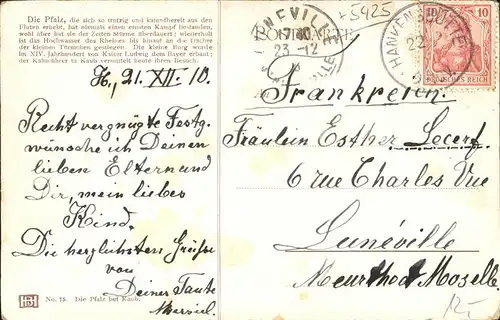 Die Pfalz, die sich so trutzig und kampfbereit aus den
Fluten erhebt, hat niemals einen ernsten Kampf bestanden,
wohl aber hat sie der Zeiten Stürme überdauert; wiederholt
ist das Hochwasser des Rheines bis hinauf an die Dächer
der kleinen Türmchen gestiegen. Die kleine Burg wurde
im XIV. Jahrhundert von Kaiser Ludwig dem Bayer erbaut;
der Kahnführer in Kaub vermittelt heute ihren Besuch.
H., 21. XII. 10.
Recht vergnügte Festg.
wünsche ich Deinen
lieben Eltern und
Dir, mein liebes
Kind.
Die herzlichsten Grüsse
von
Deiner Tante
No. 75. Die Pfalz bei Kaub.
+5925
LUNEVILLE
17 40
23 -12
POSTKARTE
HANKENSBÜTTEL
22
10 10
DEUTSCHES REICH
Frankreich.
Fräulein Esther Lecerf
6 rue Charles Vue
Lunéville
Meurthe et Moselle.
12,-